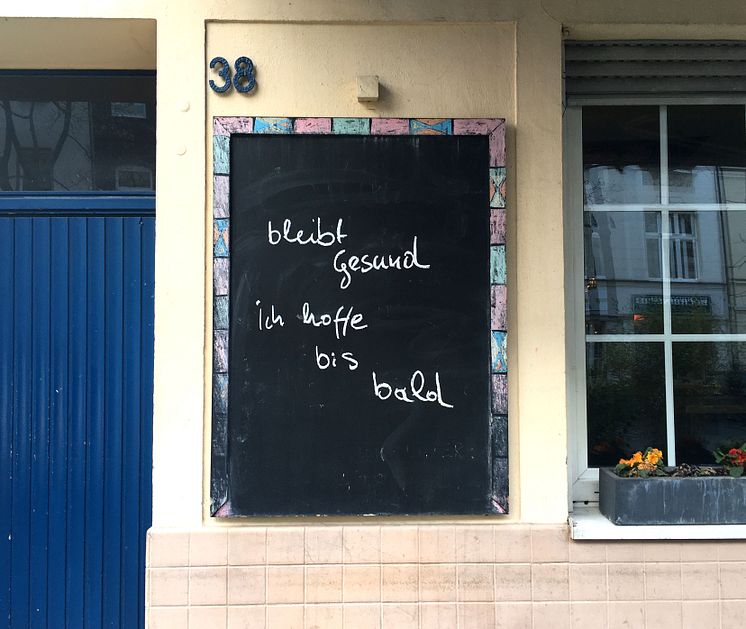 38
bleibt
Gesund
ich hoffe
bis
bald